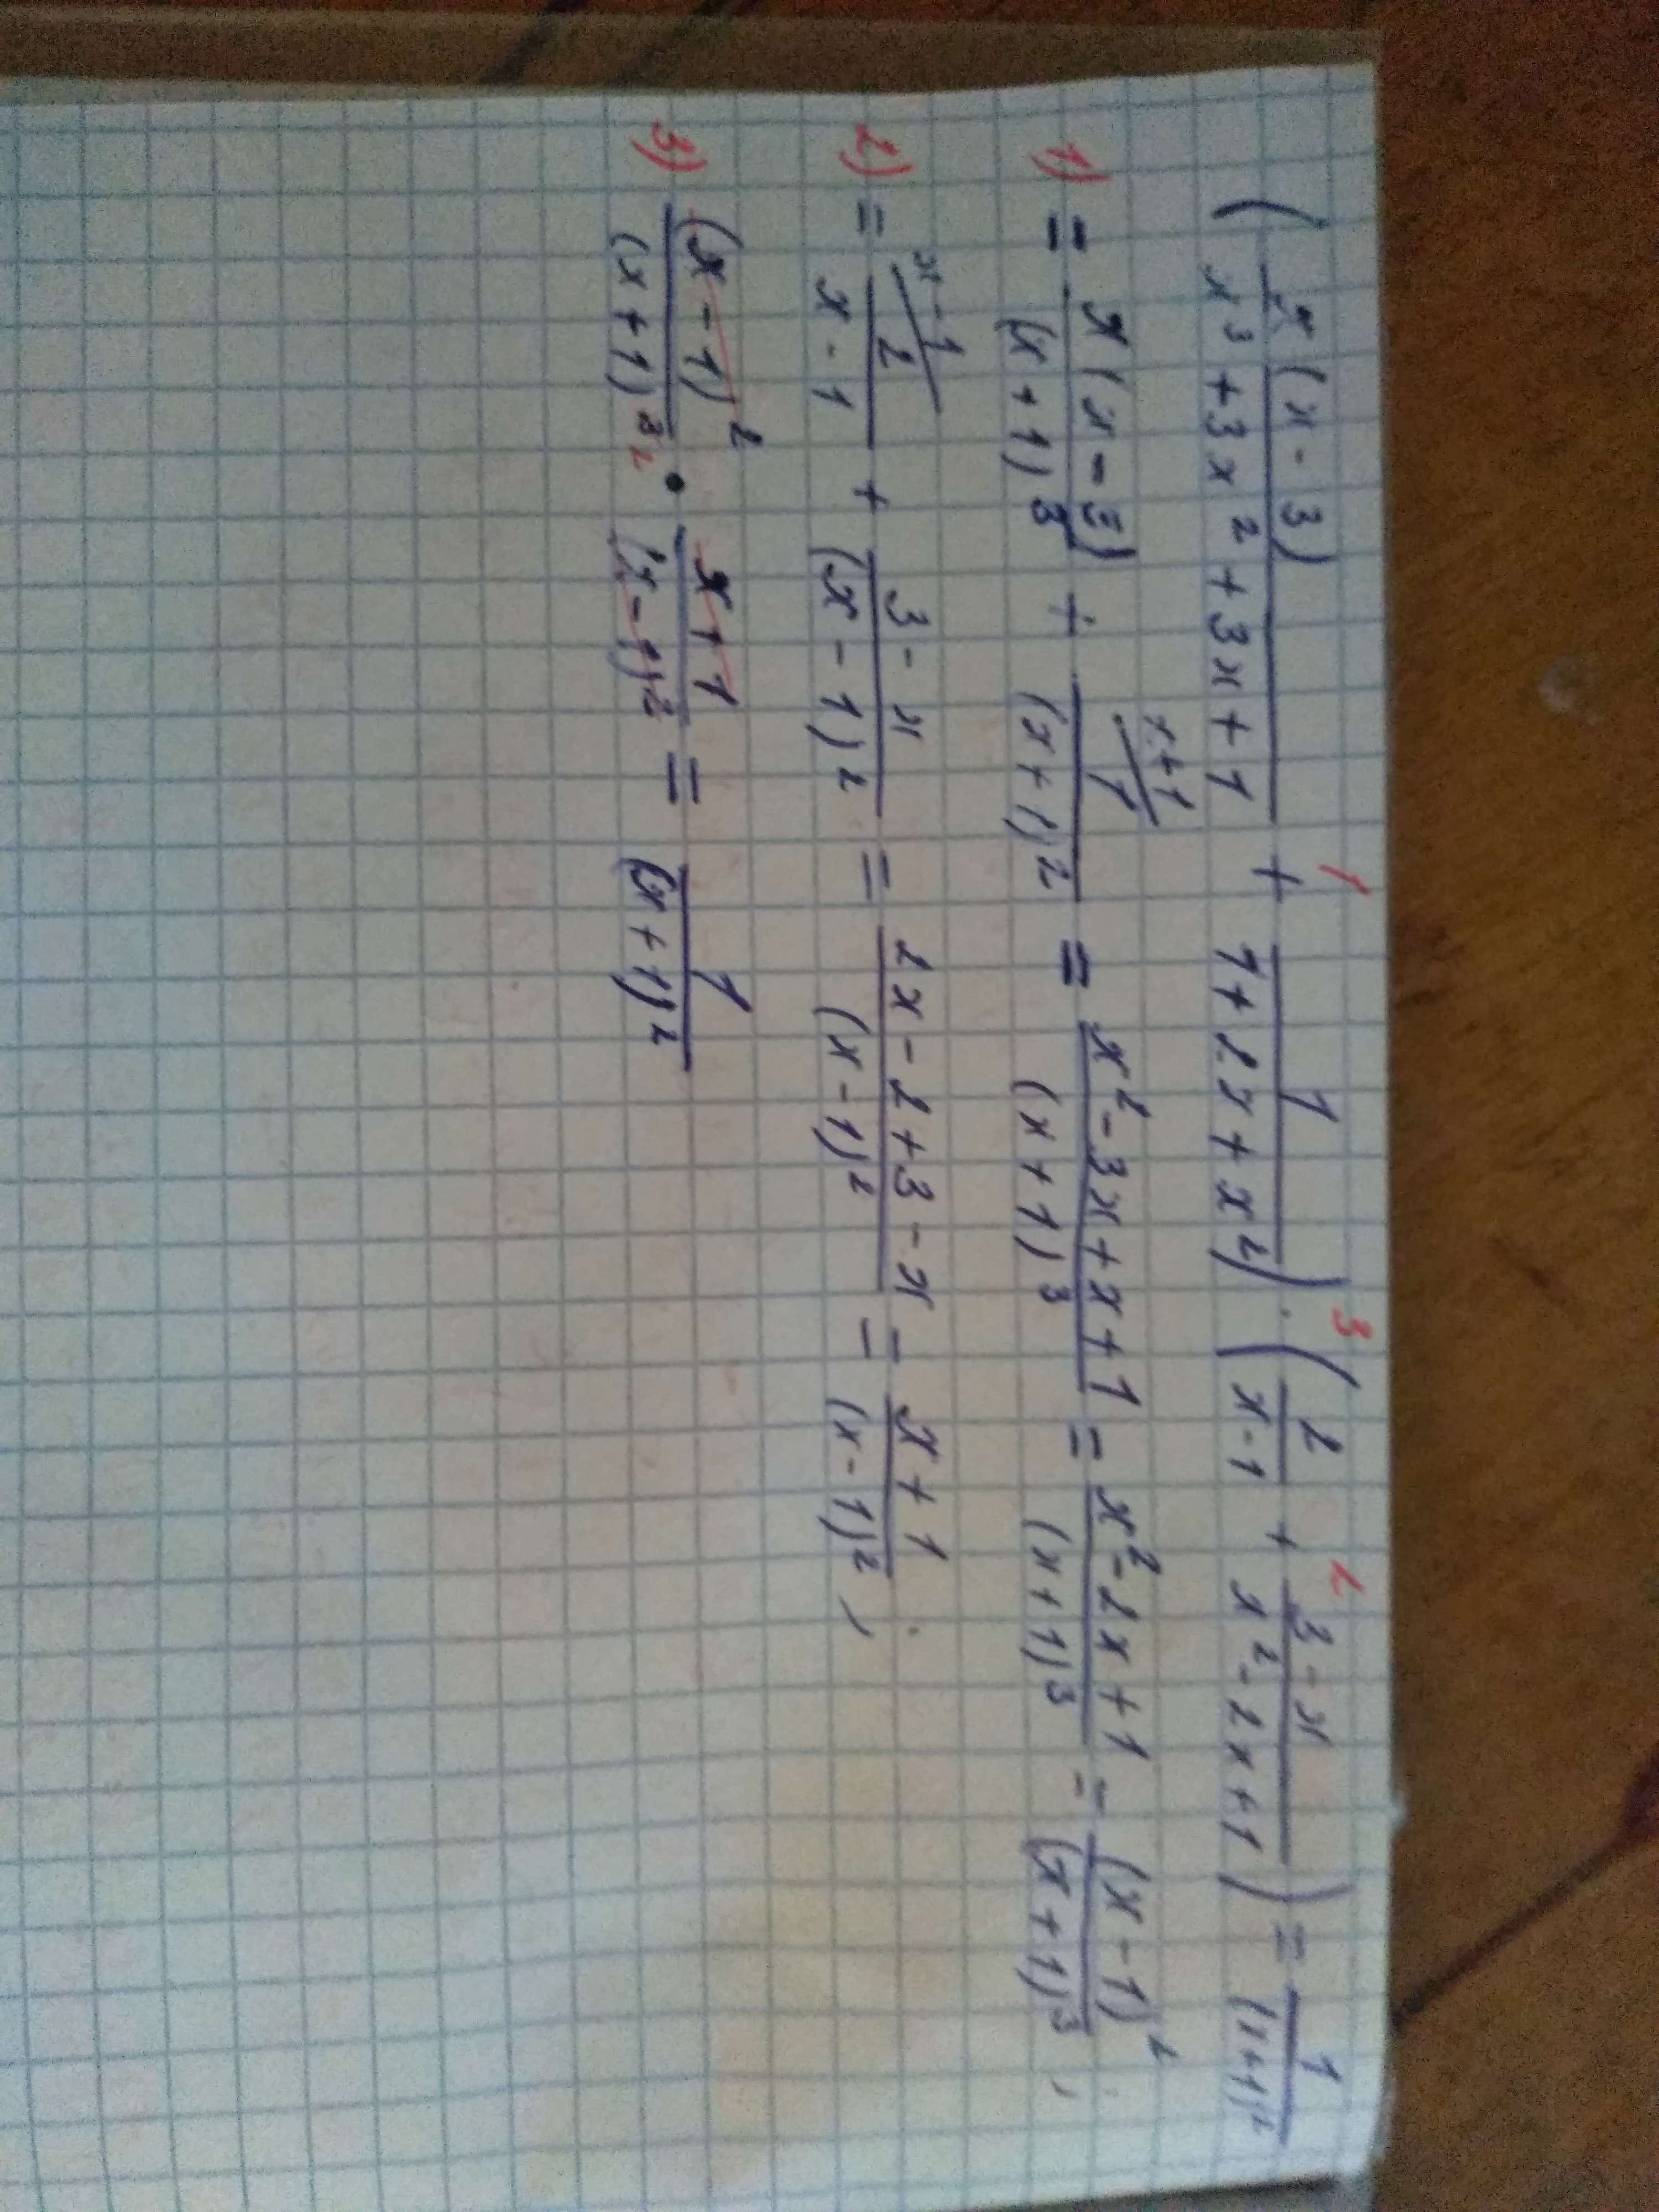 ( x(x-3) / x³+3x²+3x+1 + 1 / 1+2x+x² ) · ( 2 / x-1 + 3-x / x²-2x+1 ) = 1 / (x+1)²
1 3 2
1) = x(x-3) / (x+1)³ + x+1 / 1 / (x+1)² = x²-3x+x+1 / (x+1)³ = x²-2x+1 / (x+1)³ = (x-1)² / (x+1)³ ;
2) = x-1 / 2 / x-1 + 3-x / (x-1)² = 2x-2+3-x / (x-1)² = x+1 / (x-1)² ;
3) (x-1)² / (x+1)³ 2 · x+1 / (x-1)² = 1 / (x+1)²